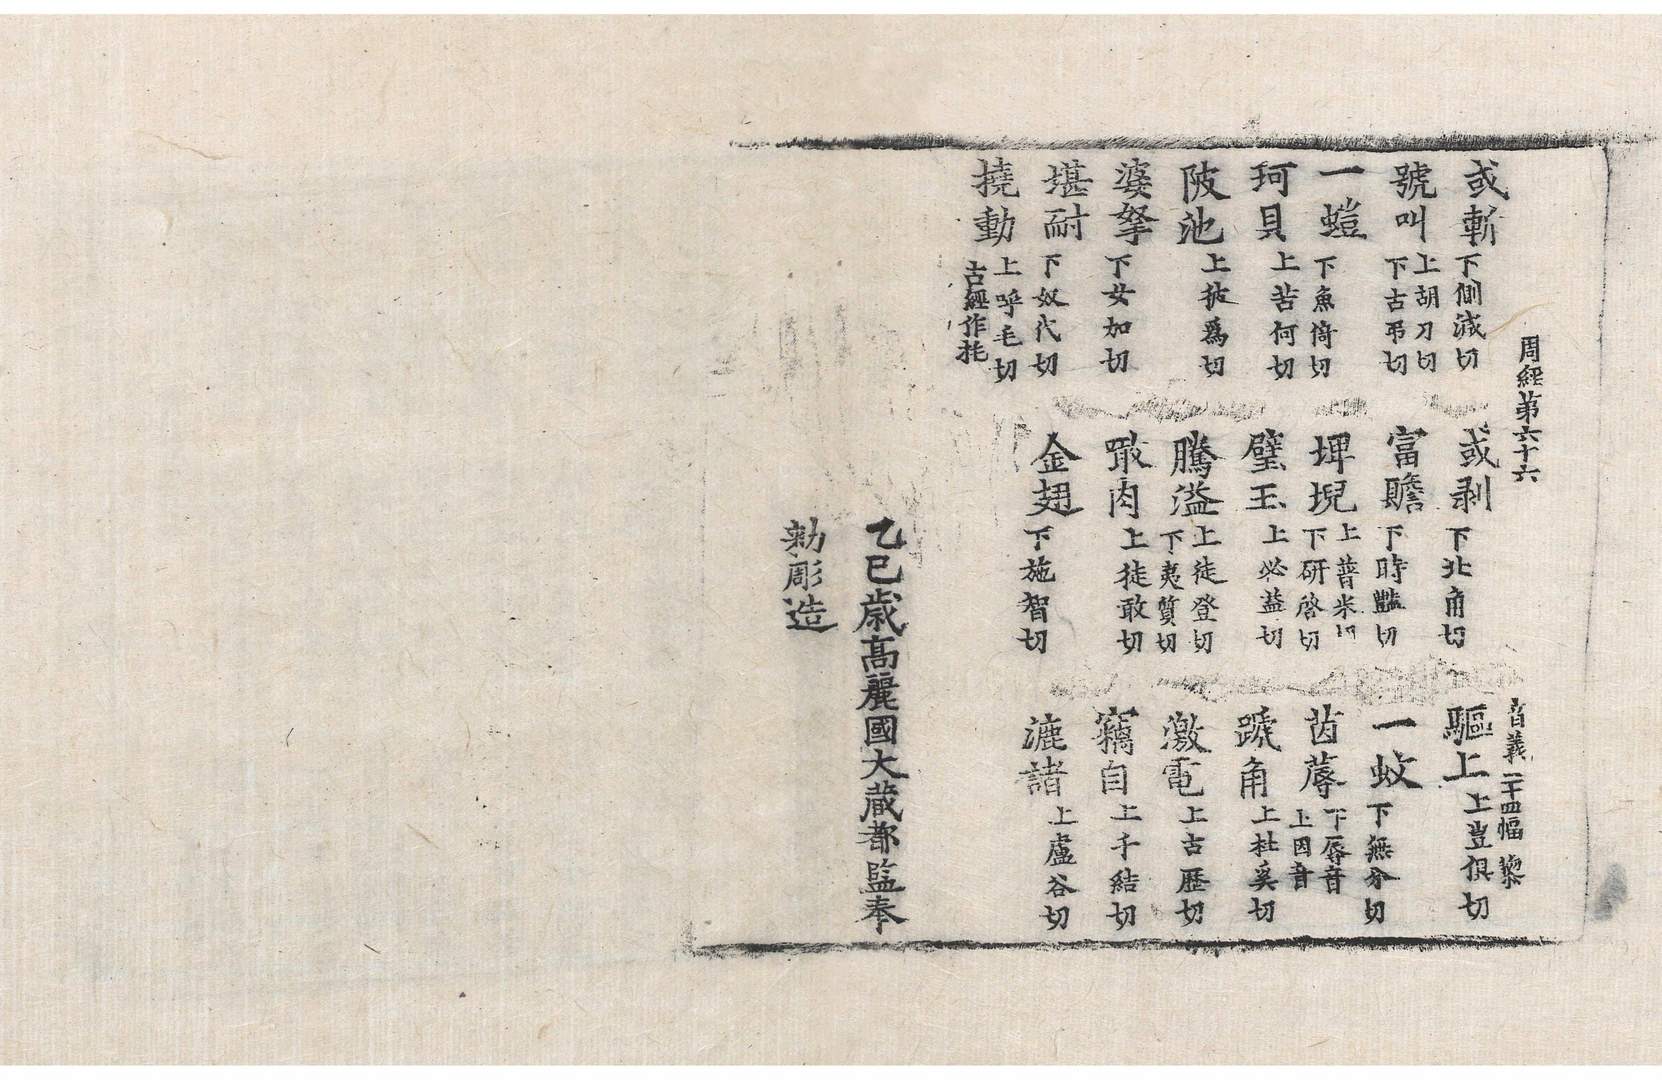 周經第六十六 音義 二十四幅 黎
或斬 下側減切 或剥 下北角切 驅上 上豈俱切
號叫 上胡刀切下古弔切 富贍 下時豔切 一蚊 下無分切
一螘 下魚倚切 埤堄 上普米切下研啓切 茵蓐 上因音下辱音
珂貝 上苦何切 璧玉 上必益切 蹏角 上杜奚切
陂池 上彼爲切 騰溢 上徒登切下夷質切 激電 上古歷切
婆拏 下女加切 噉肉 上徒敢切 竊自 上千結切
堪耐 下奴代切 金翅 下施智切 漉諸 上盧谷切
撓動 上呼毛切古經作𢫦
乙巳歲高麗國大藏都監奉
勑彫造